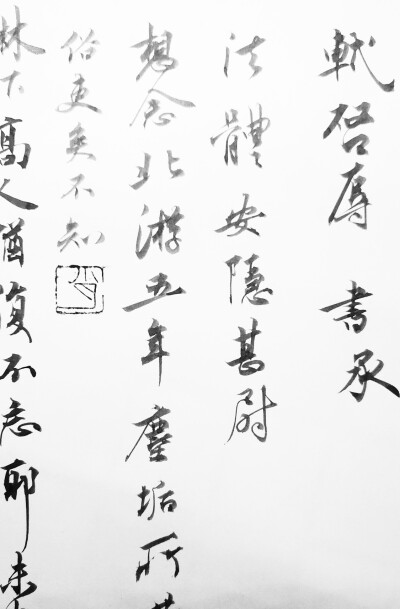 軾啓辱 書承
法體安隱甚尉
想念北游五年塵垢所
俗吏矣不知
林下高人猶復不忘耶未